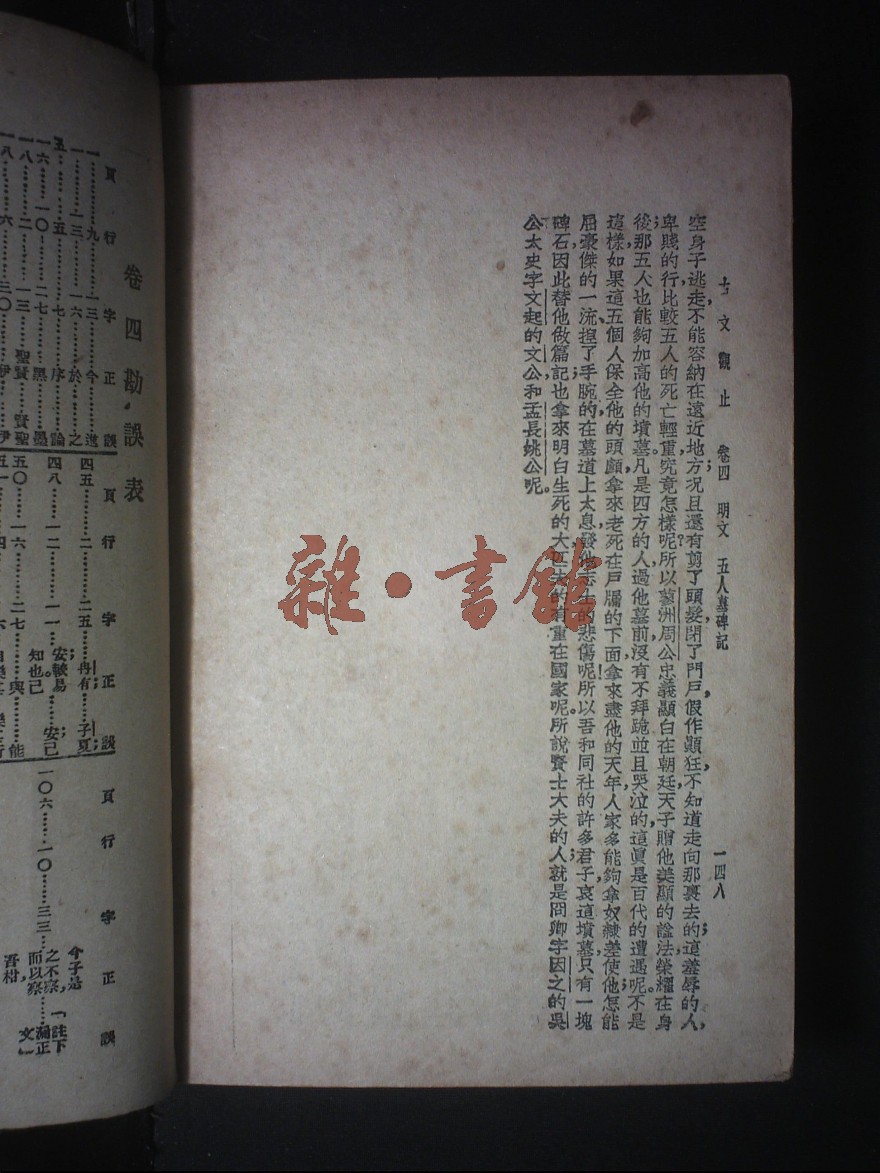 古文觀止 卷四 明文 五人墓碑記 一四八
空身子逃走，不能容納在遠近地方；況且還有剪了頭髮，閉了門戶，假作顚狂，不知道走向那裏去的；這羞辱的人，
卑賤的行，比較五人的死亡，輕重究竟怎樣呢？所以蓼洲周公，忠義顯白在朝廷，天子贈他美顯的諡法，榮耀在身
後；那五人也能夠加高他的墳墓，凡是四方的人，過他墓前，沒有不拜跪並且哭泣的，這眞是百代的遭遇呢。不是
這樣，如果這五個人，保全他的頭顱，拿來老死在戶牖的下面，拿來盡他的天年，人家多能夠拿奴隸差使他；怎能
屈豪傑的一流，揑了手腕的，在墓道上太息，發他志士的悲傷呢？所以吾和同社的許多君子，哀這墳墓，只有一塊
碑石，因此替他做篇記；也拿來明白生死的大，匹夫的着重在國家呢。所說賢士大夫的人；就是冏卿字因之的吳
公，太史字文起的文公和孟長姚公呢。
雜·書館
卷四勘誤表
頁 行 字 正 誤
一……九……一三……今……進
一……一三……一六……於……之
五……五……七……序……論
一六……一〇……二七……黑……墨
一八……二……一三……聖賢……賢聖
一八……六……三〇……伊……伊
頁 行 字 正 誤
四五……二……二五……冉有；……子夏；
四八……一二……一一……安轍易……安己
知也己
五〇……一六……二七……與……能
頁 行 字 正 誤
一〇六……一〇……三三……
今子是
之不察，
而以察
吾柑
「註下
漏正
文」